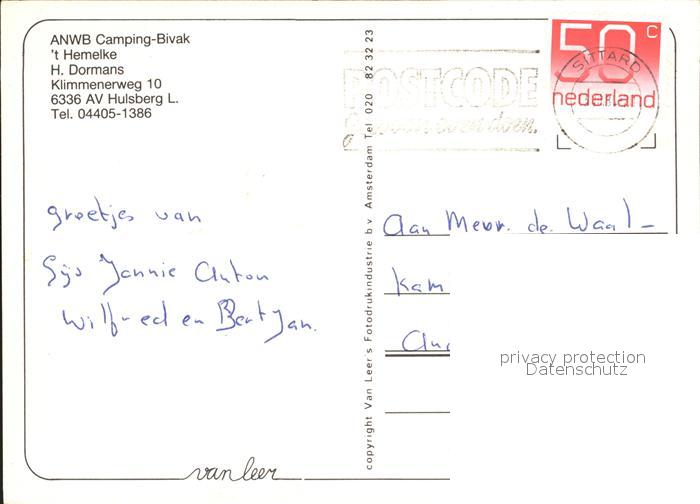 ANWB Camping-Bivak
't Hemelke
H. Dormans
Klimmenerweg 10
6336 AV Hulsberg L.
Tel. 04405-1386
POSTCODE
gewoon even doen.
50 C
nederland
SITTARD
groetjes van
Gijs Jannie Anton
Wilfred en BertJan.
copyright Van Leer's Fotodrukindustrie b.v. Amsterdam Tel 020 82 32 23
Aan Mevr. de Waal -
Kam
privacy protection
Datenschutz
van leer